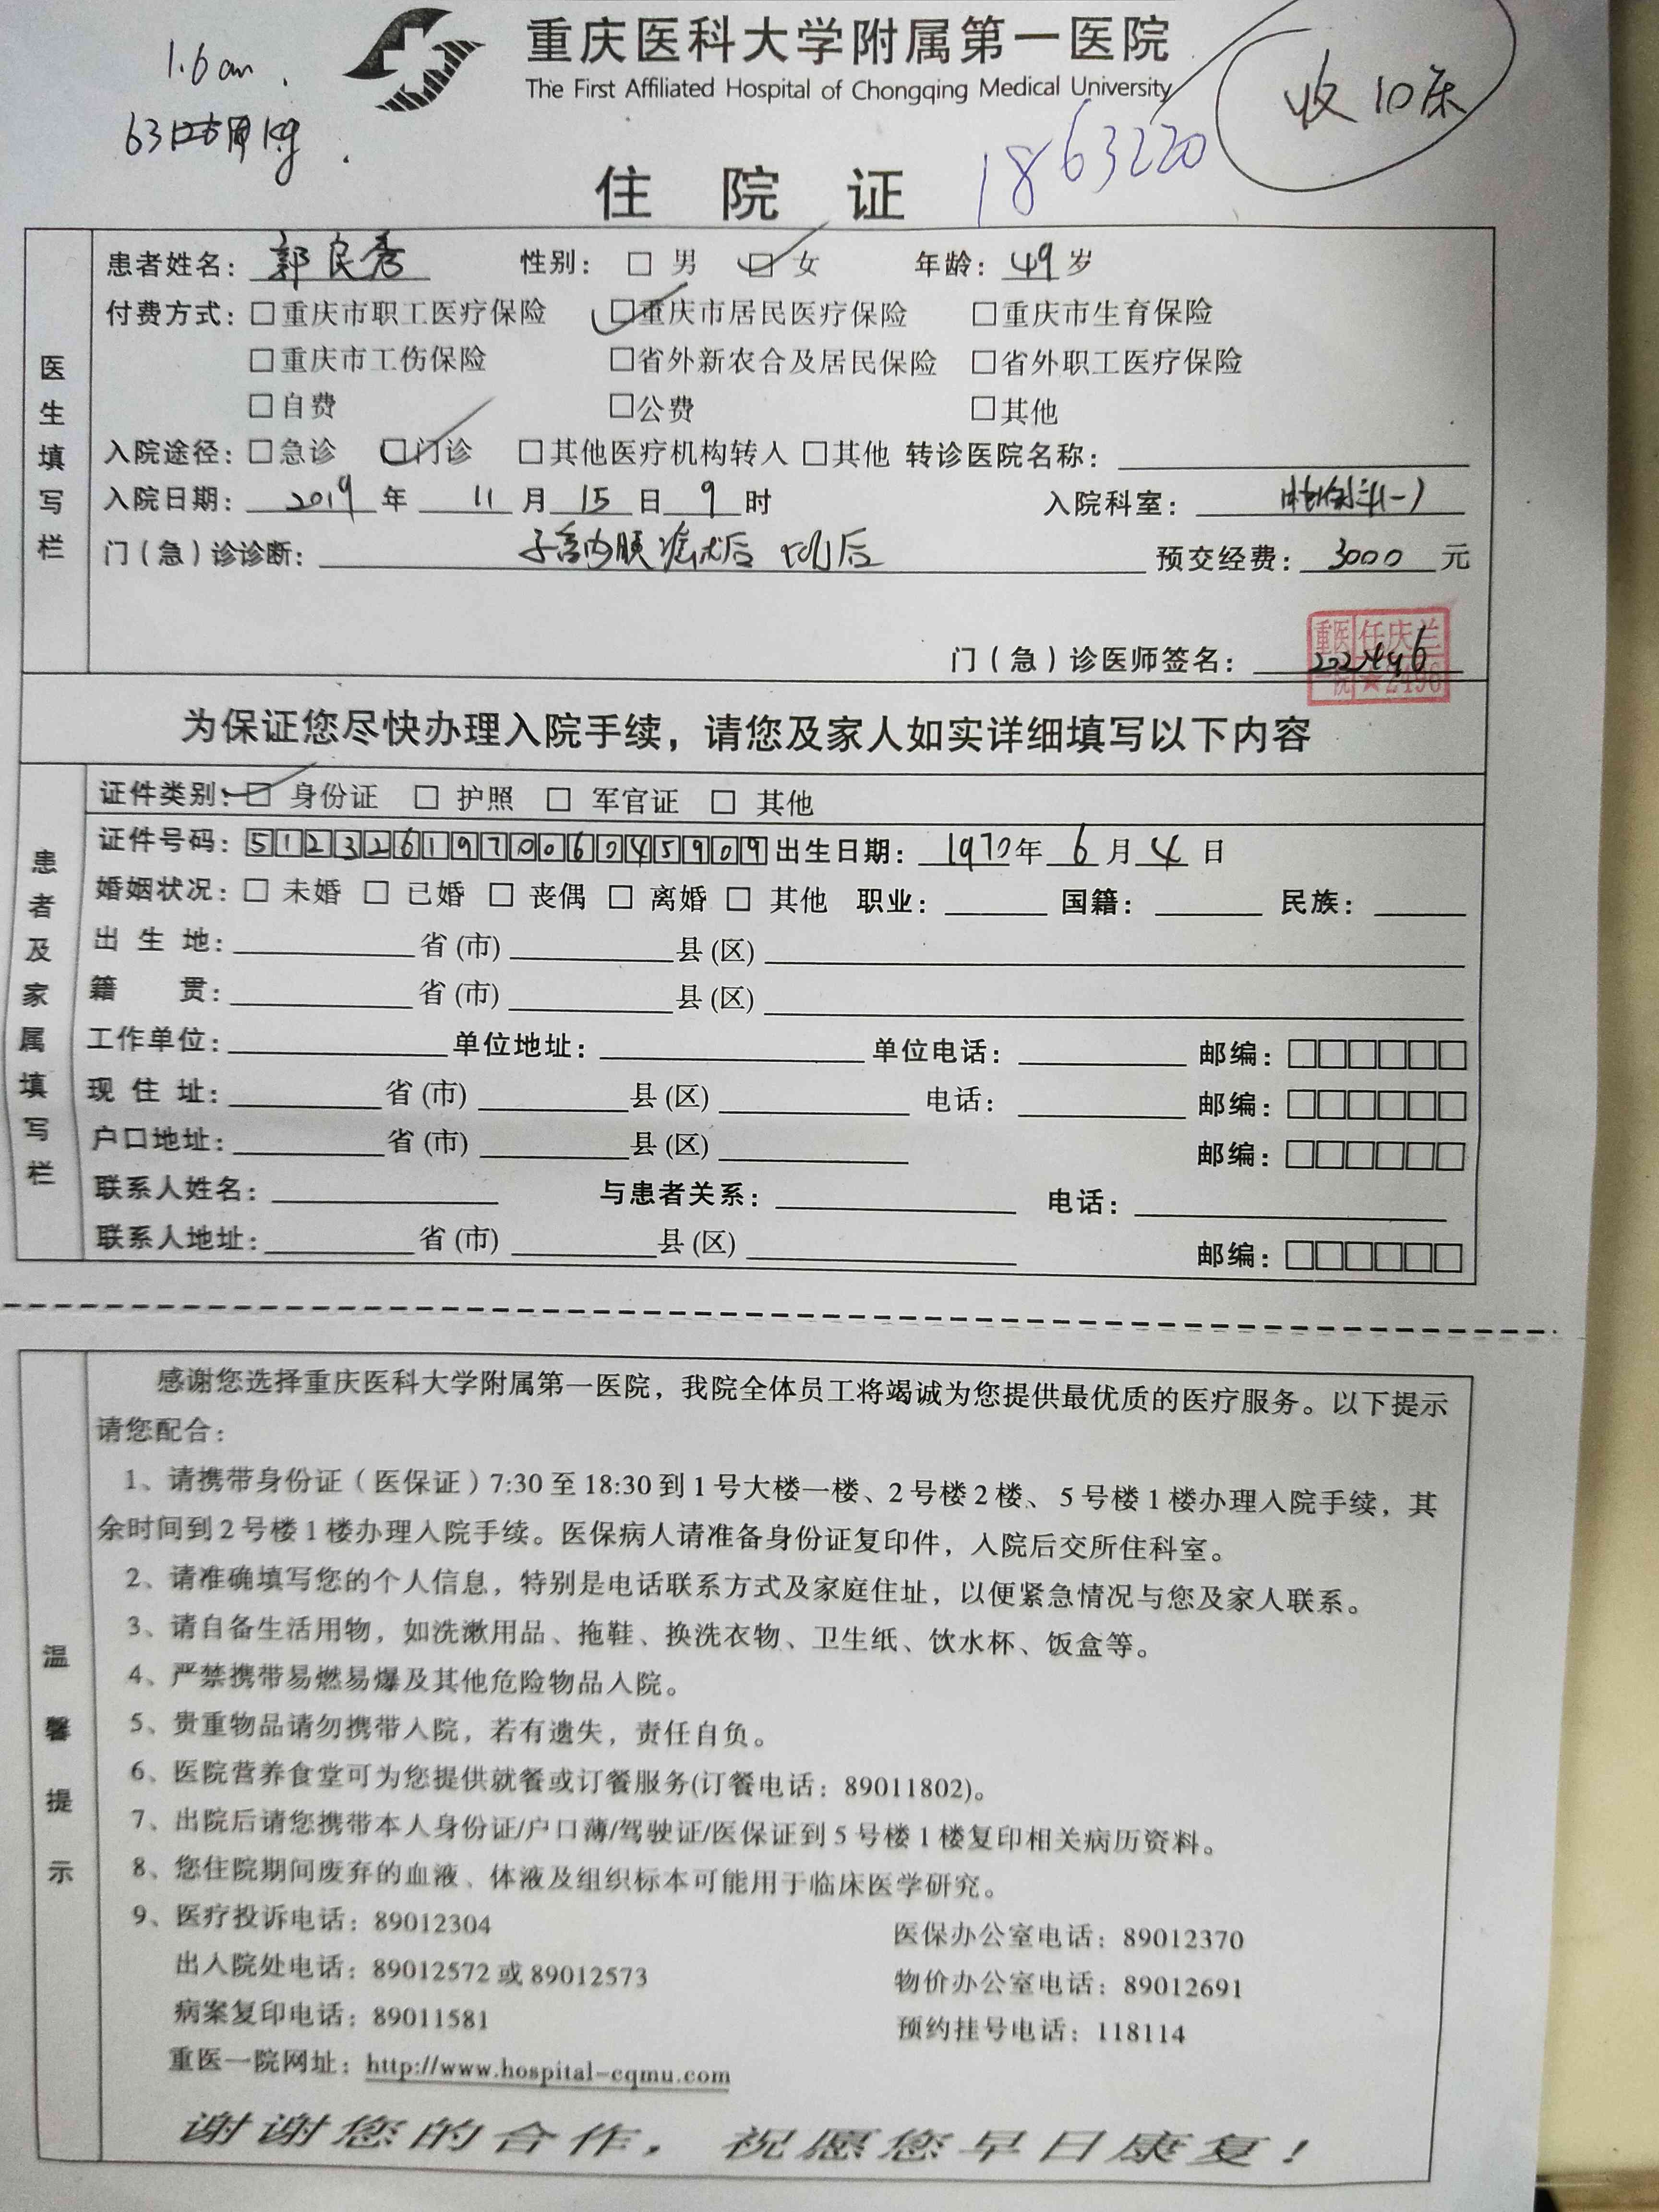 1.6 cm
63 kg
重庆医科大学附属第一医院
The First Affiliated Hospital of Chongqing Medical University
收10床
1863220
住 院 证
医生填写栏
患者姓名: 郭良秀 性别: □ 男 ☑ 女 年龄: 49 岁
付费方式: □重庆市职工医疗保险 ☑重庆市居民医疗保险 □重庆市生育保险
□重庆市工伤保险 □省外新农合及居民保险 □省外职工医疗保险
□自费 □公费 □其他
入院途径: □急诊 ☑门诊 □其他医疗机构转入 □其他 转诊医院名称:
入院日期: 2019 年 11 月 15 日 9 时 入院科室:
门(急)诊诊断: 子宫内膜癌术后 预交经费: 3000 元
门(急)诊医师签名:
重医一院 任庆兰 ★2496
为保证您尽快办理入院手续，请您及家人如实详细填写以下内容
患者及家属填写栏
证件类别: ☑ 身份证 □ 护照 □ 军官证 □ 其他
证件号码: 512326197006045909 出生日期: 1970年 6 月 4 日
婚姻状况: □ 未婚 □ 已婚 □ 丧偶 □ 离婚 □ 其他 职业: 国籍: 民族:
出 生 地: 省(市) 县(区)
籍 贯: 省(市) 县(区)
工作单位: 单位地址: 单位电话: 邮编: □□□□□□
现 住 址: 省(市) 县(区) 电话: 邮编: □□□□□□
户口地址: 省(市) 县(区) 邮编: □□□□□□
联系人姓名: 与患者关系: 电话:
联系人地址: 省(市) 县(区) 邮编: □□□□□□
温馨提示
感谢您选择重庆医科大学附属第一医院，我院全体员工将竭诚为您提供最优质的医疗服务。以下提示
请您配合:
1、请携带身份证(医保证)7:30至18:30到1号大楼一楼、2号楼2楼、5号楼1楼办理入院手续，其
余时间到2号楼1楼办理入院手续。医保病人请准备身份证复印件，入院后交所住科室。
2、请准确填写您的个人信息，特别是电话联系方式及家庭住址，以便紧急情况与您及家人联系。
3、请自备生活用物，如洗漱用品、拖鞋、换洗衣物、卫生纸、饮水杯、饭盒等。
4、严禁携带易燃易爆及其他危险物品入院。
5、贵重物品请勿携带入院，若有遗失，责任自负。
6、医院营养食堂可为您提供就餐或订餐服务(订餐电话: 89011802)。
7、出院后请您携带本人身份证/户口薄/驾驶证/医保证到5号楼1楼复印相关病历资料。
8、您住院期间废弃的血液、体液及组织标本可能用于临床医学研究。
9、医疗投诉电话: 89012304 医保办公室电话: 89012370
出入院处电话: 89012572 或 89012573 物价办公室电话: 89012691
病案复印电话: 89011581 预约挂号电话: 118114
重医一院网址: http://www.hospital-cqmu.com
谢谢您的合作，祝愿您早日康复!